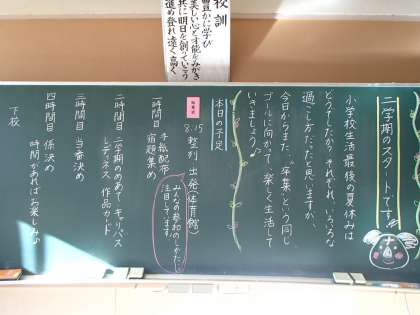 校訓
豊かに学び
美しい心と才能をみがき
共に明日を創っていこう
進め登れ遠く高く
二学期のスタートです。
小学校生活最後の夏休みは
どうでしたか。それぞれ、いろいろな
過ごし方だったと思いますが、
今日からまた、"卒業"という同じ
ゴールに向かって楽しく生活して
いきましょう♪
本日の予定
8:15 整列 出発(体育館)
みんなの参加のしかたに
注目しています。
一時間目 手紙配布
宿題集め
二時間目 二学期のめあて・キャリパス
レディネス 作品カード
三時間目 当番決め
四時間目 係決め
時間があれば、お楽しみ♪
下校